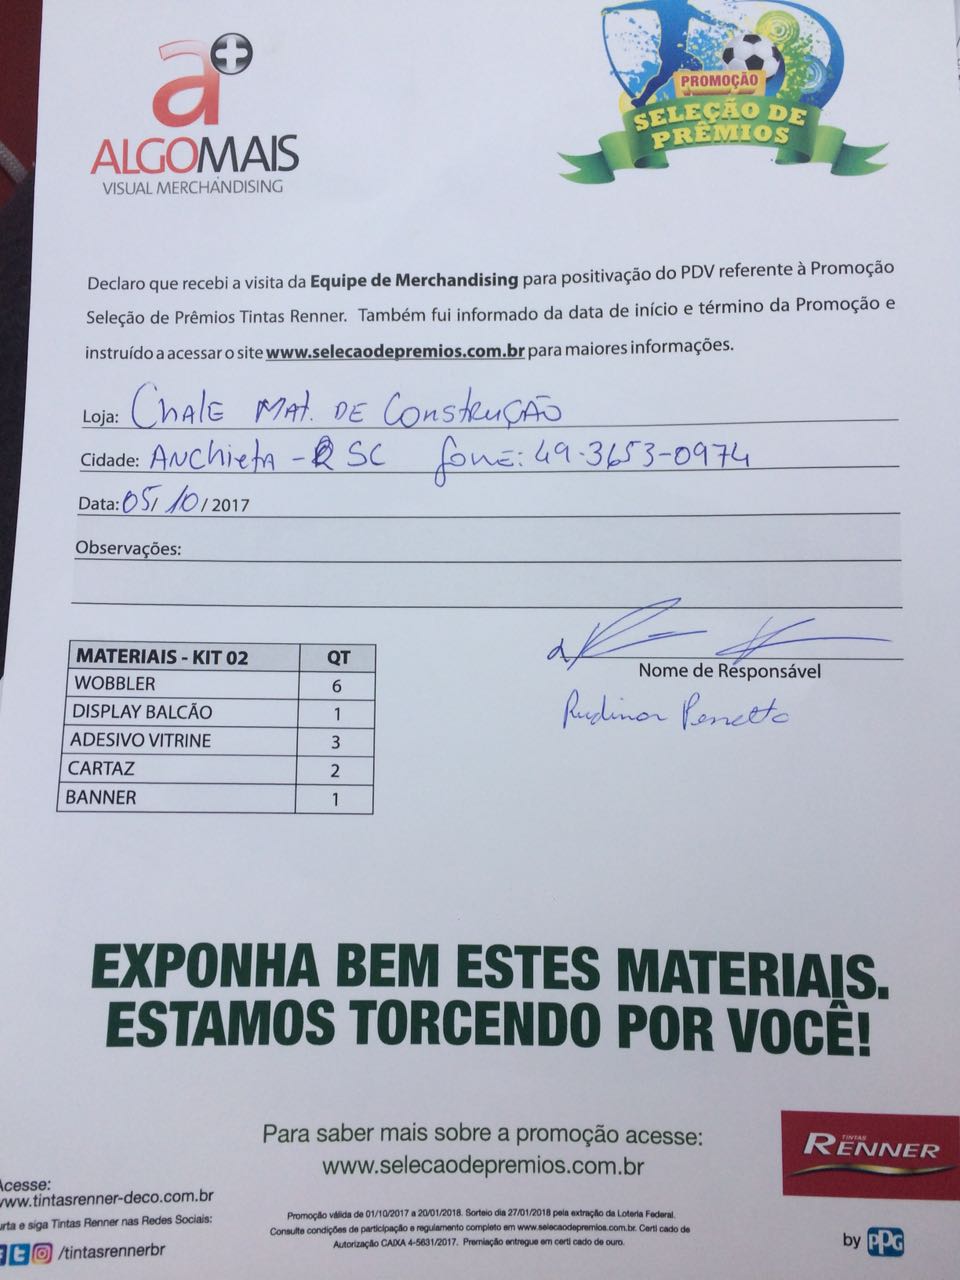 a+
ALGOMAIS
VISUAL MERCHANDISING
PROMOÇÃO
SELEÇÃO DE
PRÊMIOS
Declaro que recebi a visita da Equipe de Merchandising para positivação do PDV referente à Promoção
Seleção de Prêmios Tintas Renner. Também fui informado da data de início e término da Promoção e
instruído a acessar o site www.selecaodepremios.com.br para maiores informações.
Loja: Chale Mat. de Construção
Cidade: Anchieta - SC fone: 49-3653-0974
Data: 05/10/2017
Observações:
Nome de Responsável
Rudinor
MATERIAIS - KIT 02 QT
WOBBLER 6
DISPLAY BALCÃO 1
ADESIVO VITRINE 3
CARTAZ 2
BANNER 1
EXPONHA BEM ESTES MATERIAIS.
ESTAMOS TORCENDO POR VOCÊ!
Para saber mais sobre a promoção acesse:
www.selecaodepremios.com.br
TINTAS
RENNER
Acesse:
www.tintasrenner-deco.com.br
urta e siga Tintas Renner nas Redes Sociais:
/tintasrennerbr
Promoção válida de 01/10/2017 a 20/01/2018. Sorteio dia 27/01/2018 pela extração da Loteria Federal.
Consulte condições de participação e regulamento completo em www.selecaodepremios.com.br. Certi cado de
Autorização CAIXA 4-5631/2017. Premiação entregue em certi cado de ouro.
by PPG